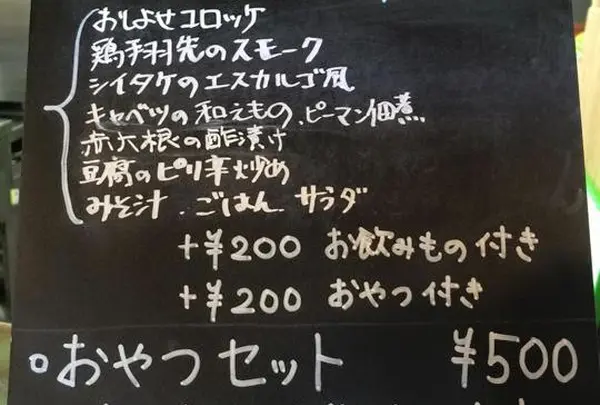 おしよせコロッケ
鶏手羽先のスモーク
シイタケのエスカルゴ風
キャベツの和えもの、ピーマン佃煮
赤大根の酢漬け
豆腐のピリ辛炒め
みそ汁、ごはん サラダ
+¥200 お飲みもの付き
+¥200 おやつ付き
○おやつセット ¥500